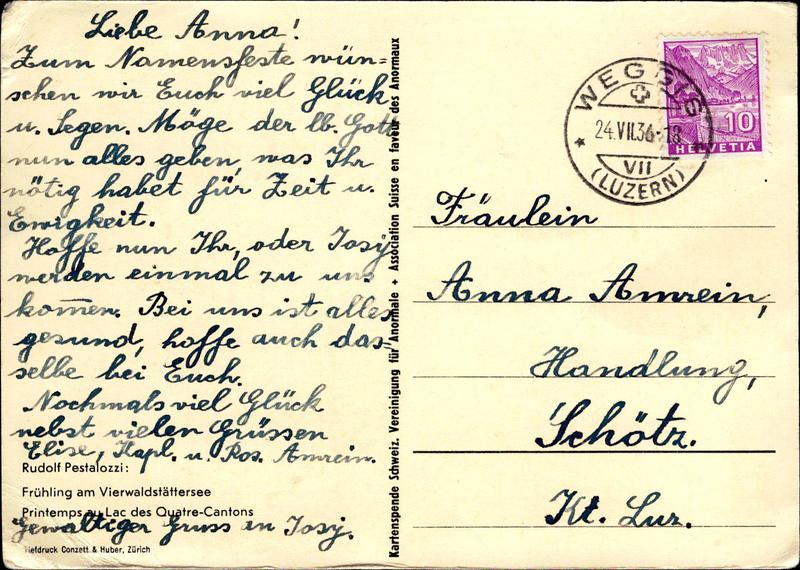 Liebe Anna!
Zum Namensfeste wün=
schen wir Euch viel Glück
u. Segen. Möge der lb. Gott
nun alles geben, was Ihr
nötig habet für Zeit u.
Ewigkeit.
Hoffe nun Ihr, oder Josÿ
werden einmal zu uns
kom̄en. Bei uns ist alles
gesund, hoffe auch das=
selbe bei Euch.
Nochmals viel Glück
nebst vielen Grüssen
Elise, Kapl. u. Ros. Amrein.
Rudolf Pestalozzi:
Frühling am Vierwaldstättersee
Printemps au Lac des Quatre-Cantons
Gewaltiger Gruss an Josÿ.
Tiefdruck Conzett & Huber, Zürich
Kartenspende Schweiz. Vereinigung für Anormale + Association Suisse en faveur des Anormaux
WEGGIS
24.VII.36-18
VII
(LUZERN)
10
HELVETIA
Fräulein
Anna Amrein,
Handlung,
Schötz.
Kt. Luz.